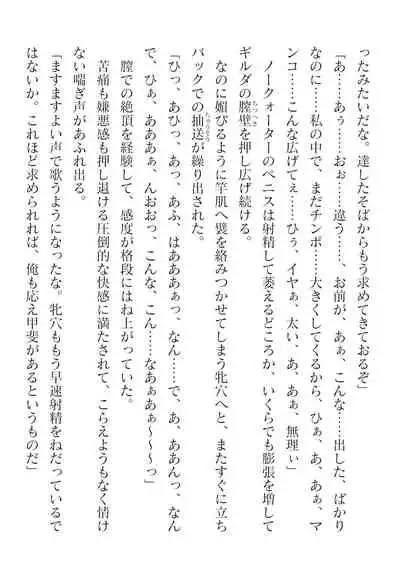 ったみたいだな。達したそばからもう求めてきておるぞ」
「あ……あぅ……おぉ……違う……、お前が、あぁ、こんな……出した、ばかり
なのに……私の中で、まだチンポ……大きくしてくるから、ひぁ、あ、あぁ、マ
ンコ……こんな広げてぇ……ひぅ、イヤぁ、太い、あ、あぁ、無理ぃ」
ノークォーターのペニスは射精して萎えるどころか、いくらでも膨張を増して
ギルダの膣壁を押し広げ続ける。
なのに媚びるように竿肌へ襞を絡みつかせてしまう牝穴へと、またすぐに立ち
バックでの抽送が繰り出された。
「ひっ、あひっ、あっ、あふ、はあああぁっ、なん……で、あ、ああんっ、なん
で、ひぁ、あああぁ、んおおっ、こんな、こん……なあぁあぁ～～～っ」
膣での絶頂を経験して、感度が格段にはね上がっていた。
苦痛も嫌悪感も押し退ける圧倒的な快感に満たされて、こらえようもなく情け
ない喘ぎ声があふれ出る。
「ますますよい声で歌うようになったな。牝穴ももう早速射精をねだっているで
はないか。これほど求められれば、俺も応え甲斐があるというものだ」